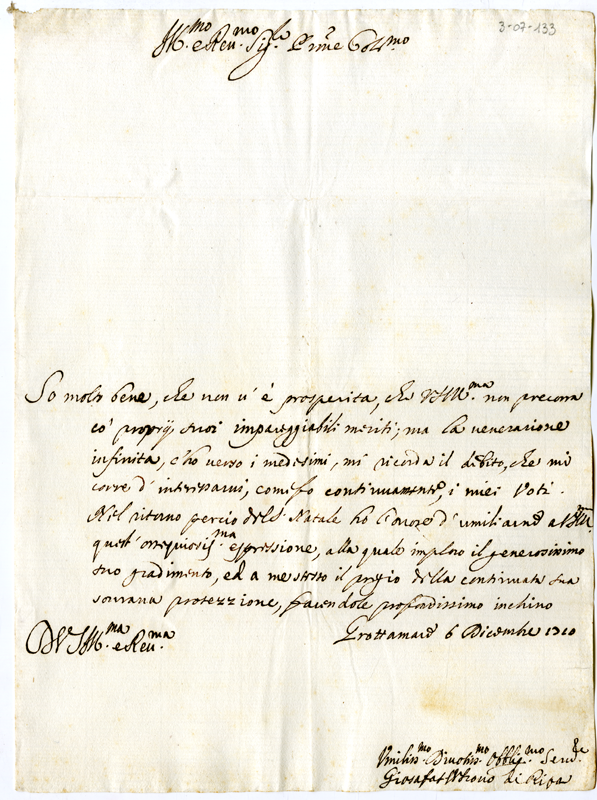 3-07-133
Ill.mo e Reu.mo Sig.re P.rone Col.mo
So molto bene, che non u' è prosperità, che VS Ill.ma non precorra
co' proprij suoi impareggiabili meriti; ma la venerazione
infinita, c'ho verso i medesimi, mi ricorda il debito, che mi
corre d' interessarui, come fo continuamente, i miei Voti.
Nel ritorno perciò del S. Natale ho l'onore d' umiliarne a VS Ill.
quest' ossequiosiss.ma espressione, alla quale imploro il generosissimo
suo gradimento, ed a me stesso il pregio della continuata sua
sourana protezzione, facendole profondissimo inchino
D VS Ill.ma e Reu.ma
Grottamare 6 Dicembre 1710
Umiliss.mo Diuotiss.mo Obblig.mo Seru.re
Giosafat di Ripa